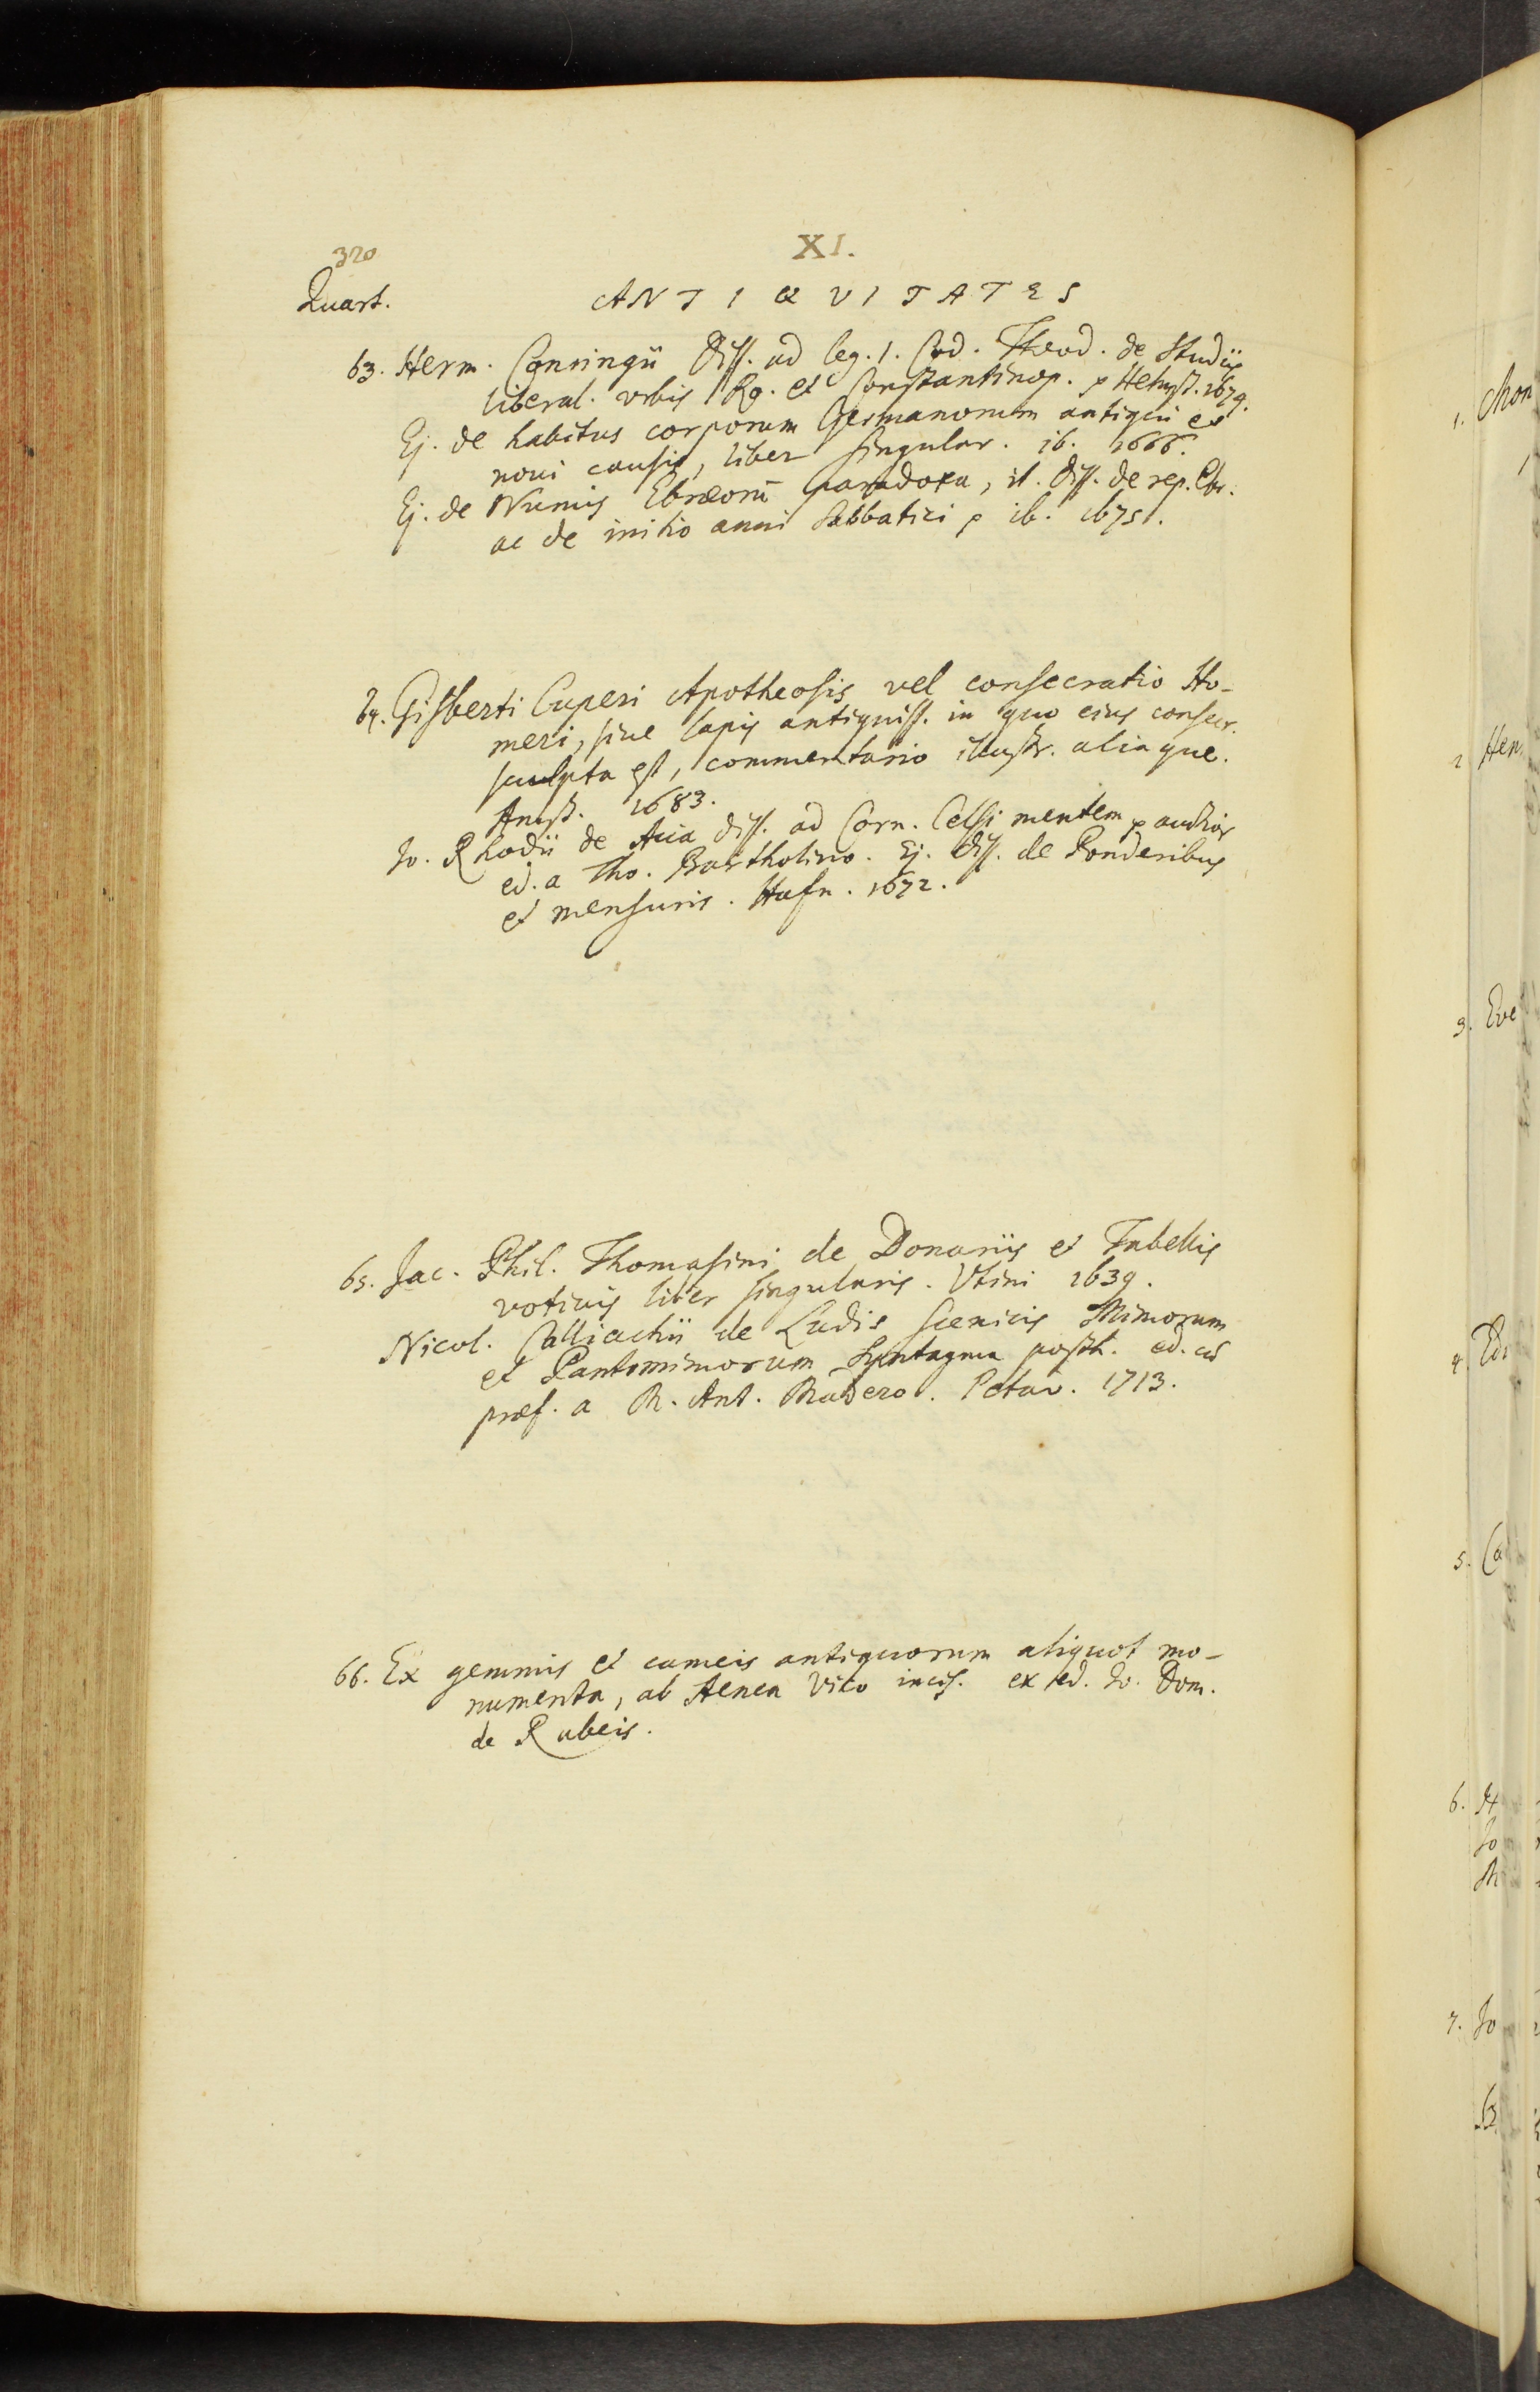 320
XI.
Quart.
ANTIQVITATES
63. Herm. Conringii diss. ad leg. 1. Cod. Theod. de Studiis
liberal. vrbis Ro. et Constantinop. Helmst. 1674.
Ej. de habitus corporum Germanorum antiqui et
noui causis, liber singular. ib. 1666.
Ej. de Numis Ebræorū paradoxa, it. diss. de rep. Ebr.
ac de initio anni Sabbatici ib. 1675.
64. Gisberti Cuperi Apotheosis vel consecratio Ho-
meri, siue lapis antiquiss. in quo eius consecr.
sculpta est, commentario illustr. aliaque.
Amst. 1683.
Jo. Rhodii de Acia diss. ad Corn. Celsi mentem auctior
ed. a Tho. Bartholino. Ej. diss. de Ponderibus
et mensuris. Hafn. 1672.
65. Jac. Phil. Thomasini de Donariis et Tabellis
votiuis liber singularis. Vtini 1639.
Nicol. Calliachii de Ludis scenicis Mimorum
et Pantomimorum Syntagma posth. ed. cū
præf. a M. Ant. Madero. Patav. 1713.
66. Ex gemmis et cameis antiquorum aliquot mo-
numenta, ab Aenea Vico incis. ex ed. Jo. Dom.
de Rubeis.
1.
2. Hen
3. Eve
4.
5. Ca
6.
Jo
7. Jo